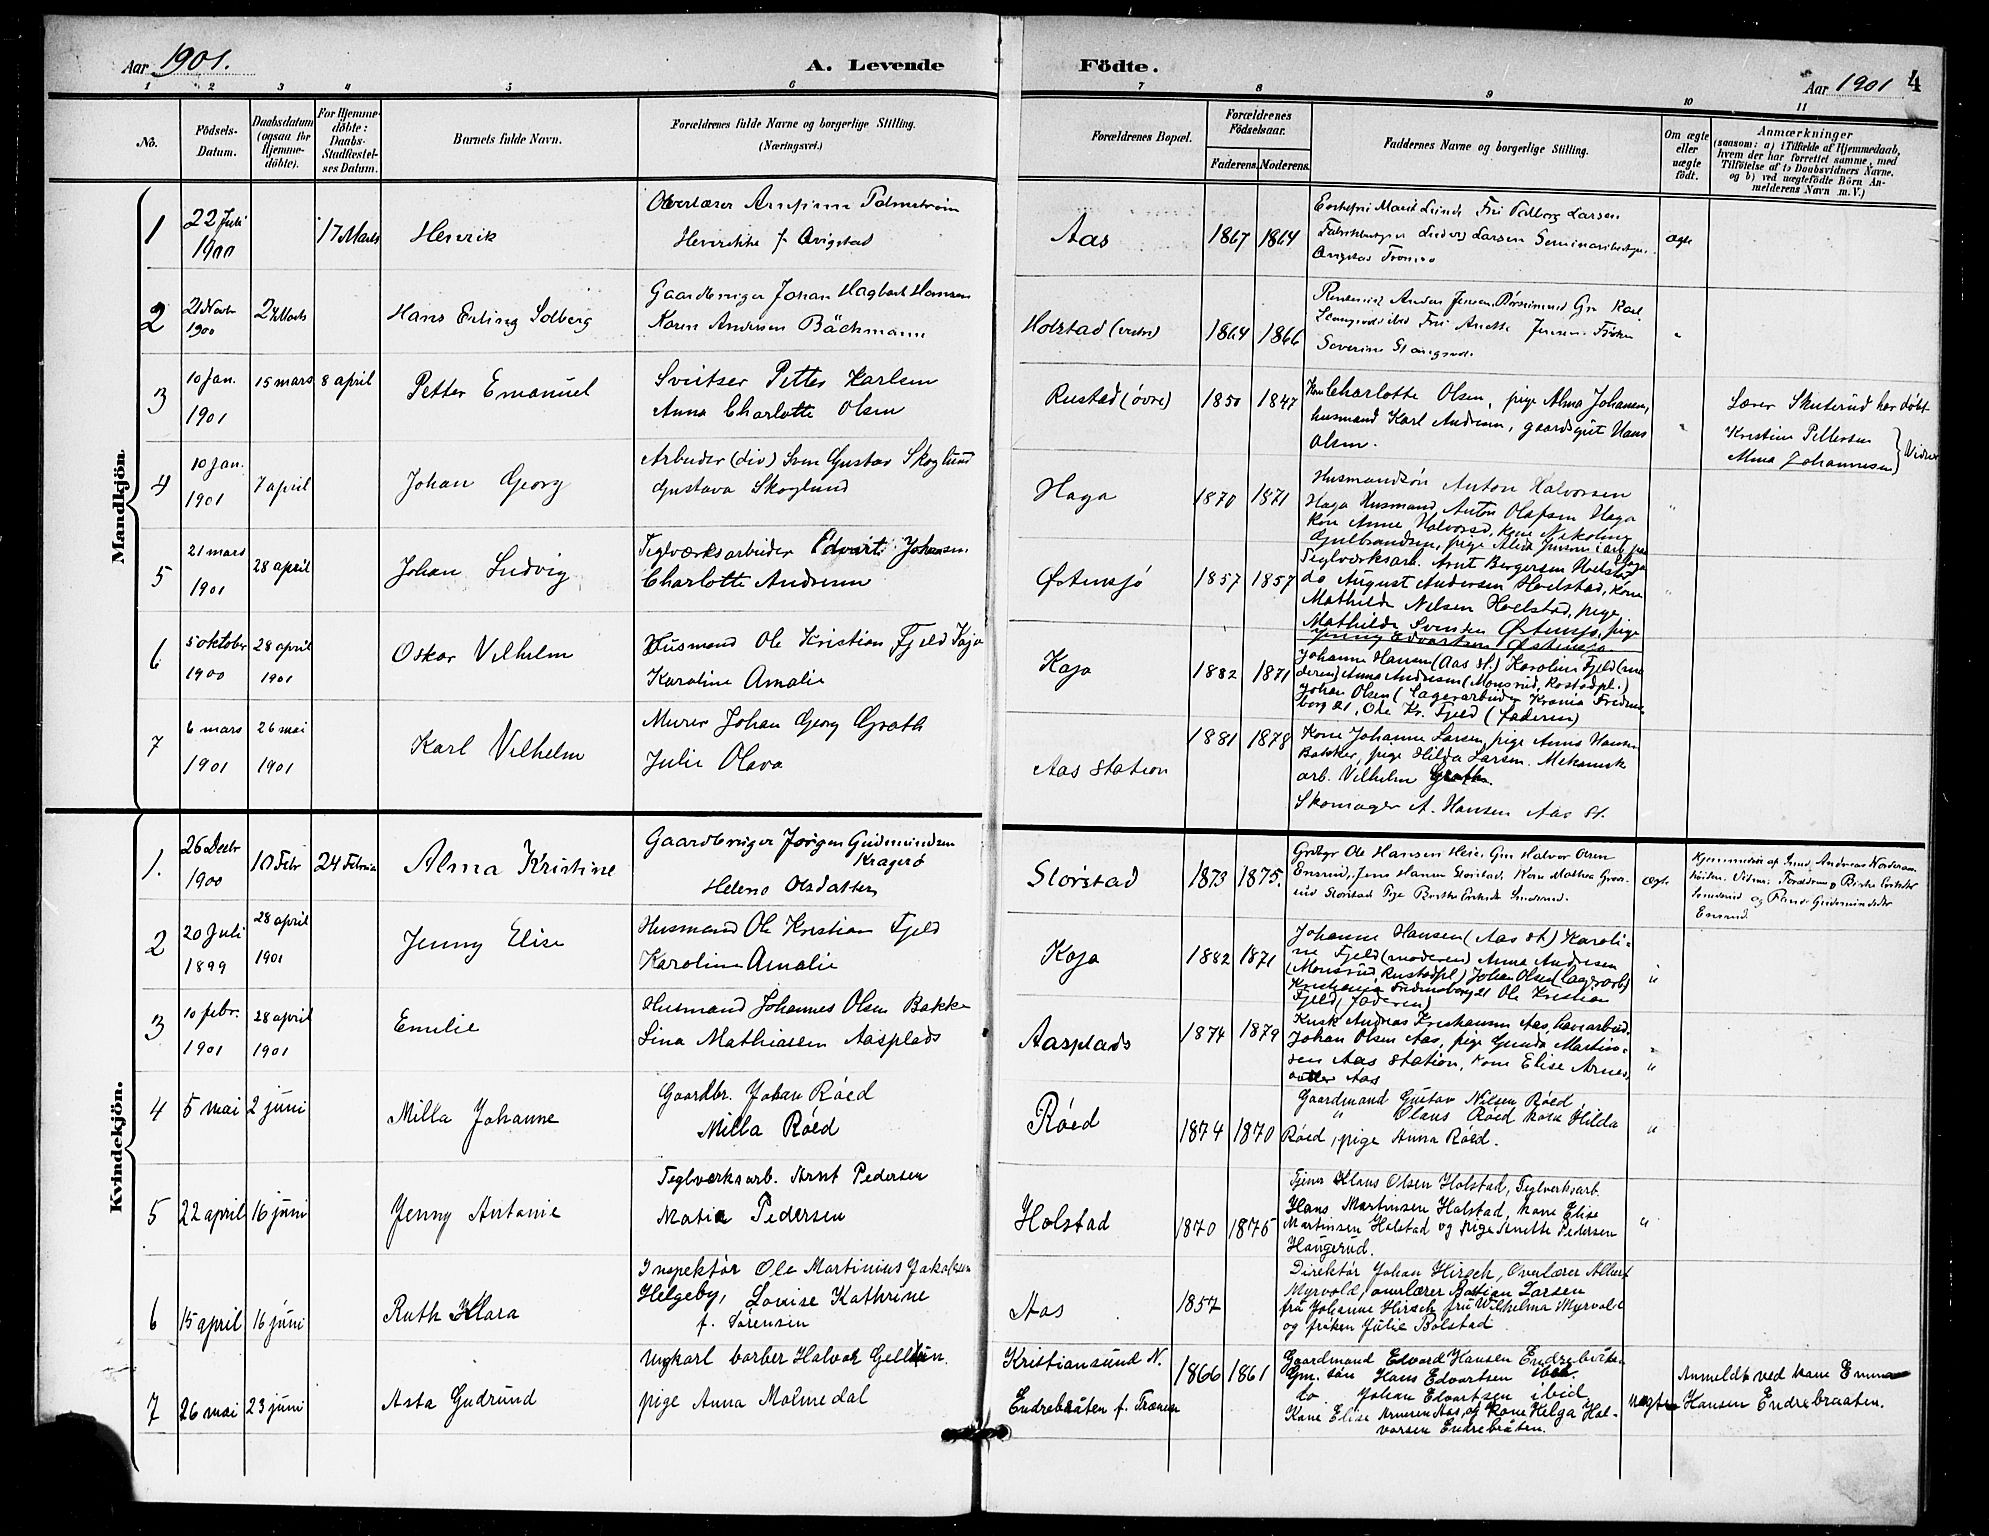 Aar 1901.
A. Levende Födte.
Aar 1901
4
1 2 3 4 5 6 7 8 9 10 11
No.
Födsels-
Datum.
Daabsdatum
(ogsaa for
Hjemme-
döbte).
For Hjemme-
döbte:
Daabs-
Stadfæstel-
ses Datum.
Barnets fulde Navn.
Forældrenes fulde Navne og borgerlige Stilling.
(Næringsvei.)
Forældrenes Bopæl.
Forældrenes
Födselsaar.
Faderens. Moderens.
Faddernes Navne og borgerlige Stilling.
Om ægte
eller
uægte
født.
Anmærkninger
(saasom: a) i Tilfælde af Hjemmedaab,
hvem der har forrettet samme, med
Tilföielse af to Daabsvidners Navne.
og b) ved uægtefödte Börn An-
melderens Navn m. V.)
Mandkjön.
1
22 Juli
1900
17 Marts
Henrik
Overlærer
Henrikke f.
Aas
1867 1864
Larsen
Larsen
ægte
2
21 Novbr
1900
24 Marts
Hans Erling Solberg
Gaardbruger Johan Hagbart Hansen
Karen Andersen Bächmann
Holstad (vestre)
1864 1866
Anders Jensen
Severine
"
3
10 Jan.
1901
15 mars
8 april
Petter Emanuel
Sveitser Petter Karlsen
Anna Charlotte Olsen
Rustad (övre)
1850 1847
Kone Charlotte Olsen, pige Alma Johansen,
husmand Karl Andresen, gaardsgut Hans
Olsen.
"
Lærer Skuterud har döbt
Kristine Pettersen
Alma Johannesen } Vidner
4
10 Jan.
1901
7 april
Johan Georg
Arbeider (div) Sven Gustav Skoglund
Gustava Skoglund
Haga
1870 1871
Husmandsön Anton Halvorsen
Haga Husmand Anton Olafsen Haga
Kone Anne Halvorsd, Kone Nikoline
Gulbrandsen, pige
"
5
21 mars
1901
28 april
Johan Ludvig
Teglværksarbeider Edvart Johansen
Charlotte Andresen
Østensjö
1857 1857
Teglværksarb. Arnt Bergersen Holstad
do August Andersen Holstad, Kone
Mathilde Nelsen Holstad, pige
Mathilde Svendsen Østensjö, pige
Jenny Edvartsen Østensjö
"
6
5 oktober
1900
28 april
1901
Oskar Vilhelm
Husmand Ole Kristian Fjeld Kaja
Karoline Amalie
Kaja
1882 1871
Johanne Hansen (Aas st.) Karoline Fjeld (mo
deren) Anna Andresen (Monsrud, Rustadpl.)
Johan Olsen (Lagerarbeider Krania Fredens-
borg 21, Ole Kr. Fjeld (faderen)
7
6 mars
1901
26 mai
1901
Karl Vilhelm
Murer Johan Georg Groth
Julie Olava
Aas station
1881 1878
Kone Johanne Larsen, pige Anna Hansen
Bakker, pige Hilda Larsen. Mekanisk
arb. Vilhelm Groth.
Skomager A. Hansen Aas St.
Kvindekjön.
1.
26 Decbr
1900
10 Febr
24 Februar
Alma Kristine
Gaardbruger Jörgen Gudmundsen
Kragerö
Helene Olsdatter
Storstad
1873 1875.
Ole Hansen Heie, Gm Halvor Olsen
Enerud, Jens Hansen Storstad, Kone Mathea
Storstad Pige Berthe
ægte
Hjemmedöbt af Andreas
Vidner: Forældrene og Berthe
og
Enerud.
2
20 Juli
1899
28 april
1901
Jenny Elise
Husmand Ole Kristian Fjeld
Karoline Amalie
Kaja
1882 1871
Johanne Hansen (Aas st.) Karoli-
ne Fjeld (moderen) Anna Andresen
(Monsrud, Rustadpl) Johan Olsen (lagerarb)
Kristiania Fredensborg 21 Ole Kristian
Fjeld, faderen)
"
3
10 febr.
1901
28 april
1901
Emilie
Husmand Johannes Olsen Bakke
Lina Mathiassen Aasplads
Aasplads
1874 1879
Kusk Andreas Kristiansen Aas, havearbeid.
Johan Olsen Aas, pige Gunda Martin-
sen Aas station, kone Elise Arnes,
Aas
"
4
5 mai
2 juni
Milla Johanne
Gaardbr. Johan Röed
Milla Röed
Röed
1874 1870
Gaardmand Gustav Nilsen Röed,
" Olaus Röed kone Hilda
Röed, pige Anna Röed.
"
5
22 april
16 juni
Jenny Antonie
Teglverksarb. Arnt Pedersen
Matia Pedersen
Holstad
1870 1875
Tjener Klaus Olsen Holstad, Teglverksarb.
Hans Martinsen Holstad, kone Elise
Martinsen Holstad og pige Anette Pedersen
Haugerud.
"
6
15 april
16 juni
Ruth Klara
Inspektör Ole Martinius Jakobsen
Helgeby, Louise Kathrine
f. Sörensen
Aas
1857
Direktör Johan Hirsch, Overlærer Albert
Myrvold, overlærer Bastian Larsen
fru Johanne Hirsch fru Wilhelma Myrvold
og fröken Julie Bolstad
7
26 mai
23 juni
Asta Gudrund
Ungkarl barber Halvor Gellein.
pige Anna Malmedal
Kristiansund N.
Endrebråten f. Tranen
1866 1861
Gaardmand Edvard Hansen Endrebråten
Gm. sön Hans Edvartsen ibid.
do Johan Edvartsen ibid
Kone Elise Arnesen Aas, og kone Helga Hal-
vorsen Endrebråten.
uægte
Anmeldt ved kone Emma
Hansen Endrebraaten.